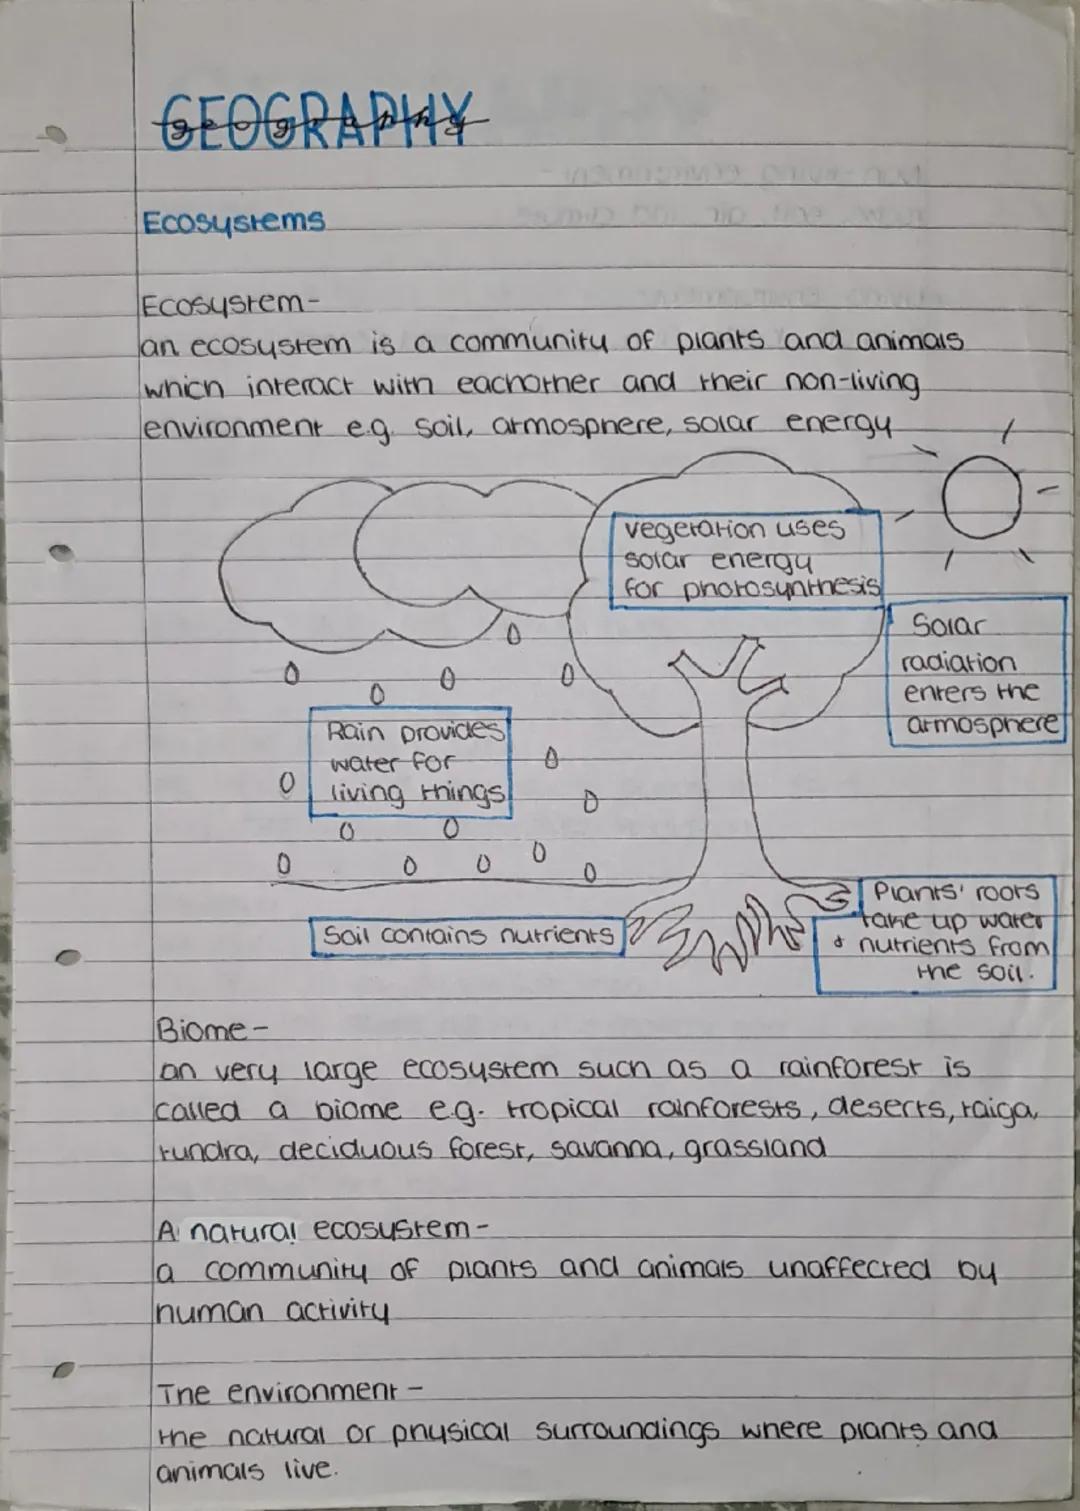 GEOGRAPHY
geography
Ecosystems
Ecosystem-
an ecosystem is a community of plants and animals
which interact with eachother and their non-living
environment e.g. soil, atmosphere, solar energy
vegetation uses
solar energy
for photosynthesis
Solar
radiation
enters the
atmosphere
Rain provides
water for
living things
Soil contains nutrients
Plants' roots
take up water
& nutrients from
the soil.
Biome-
an very large ecosystem such as a rainforest is
called a biome e.g. tropical rainforests, deserts, taiga,
tundra, deciduous forest, savanna, grassland
A natural ecosystem-
a community of plants and animals unaffected by
human activity
The environment-
the natural or physical surroundings where plants and
animals live.